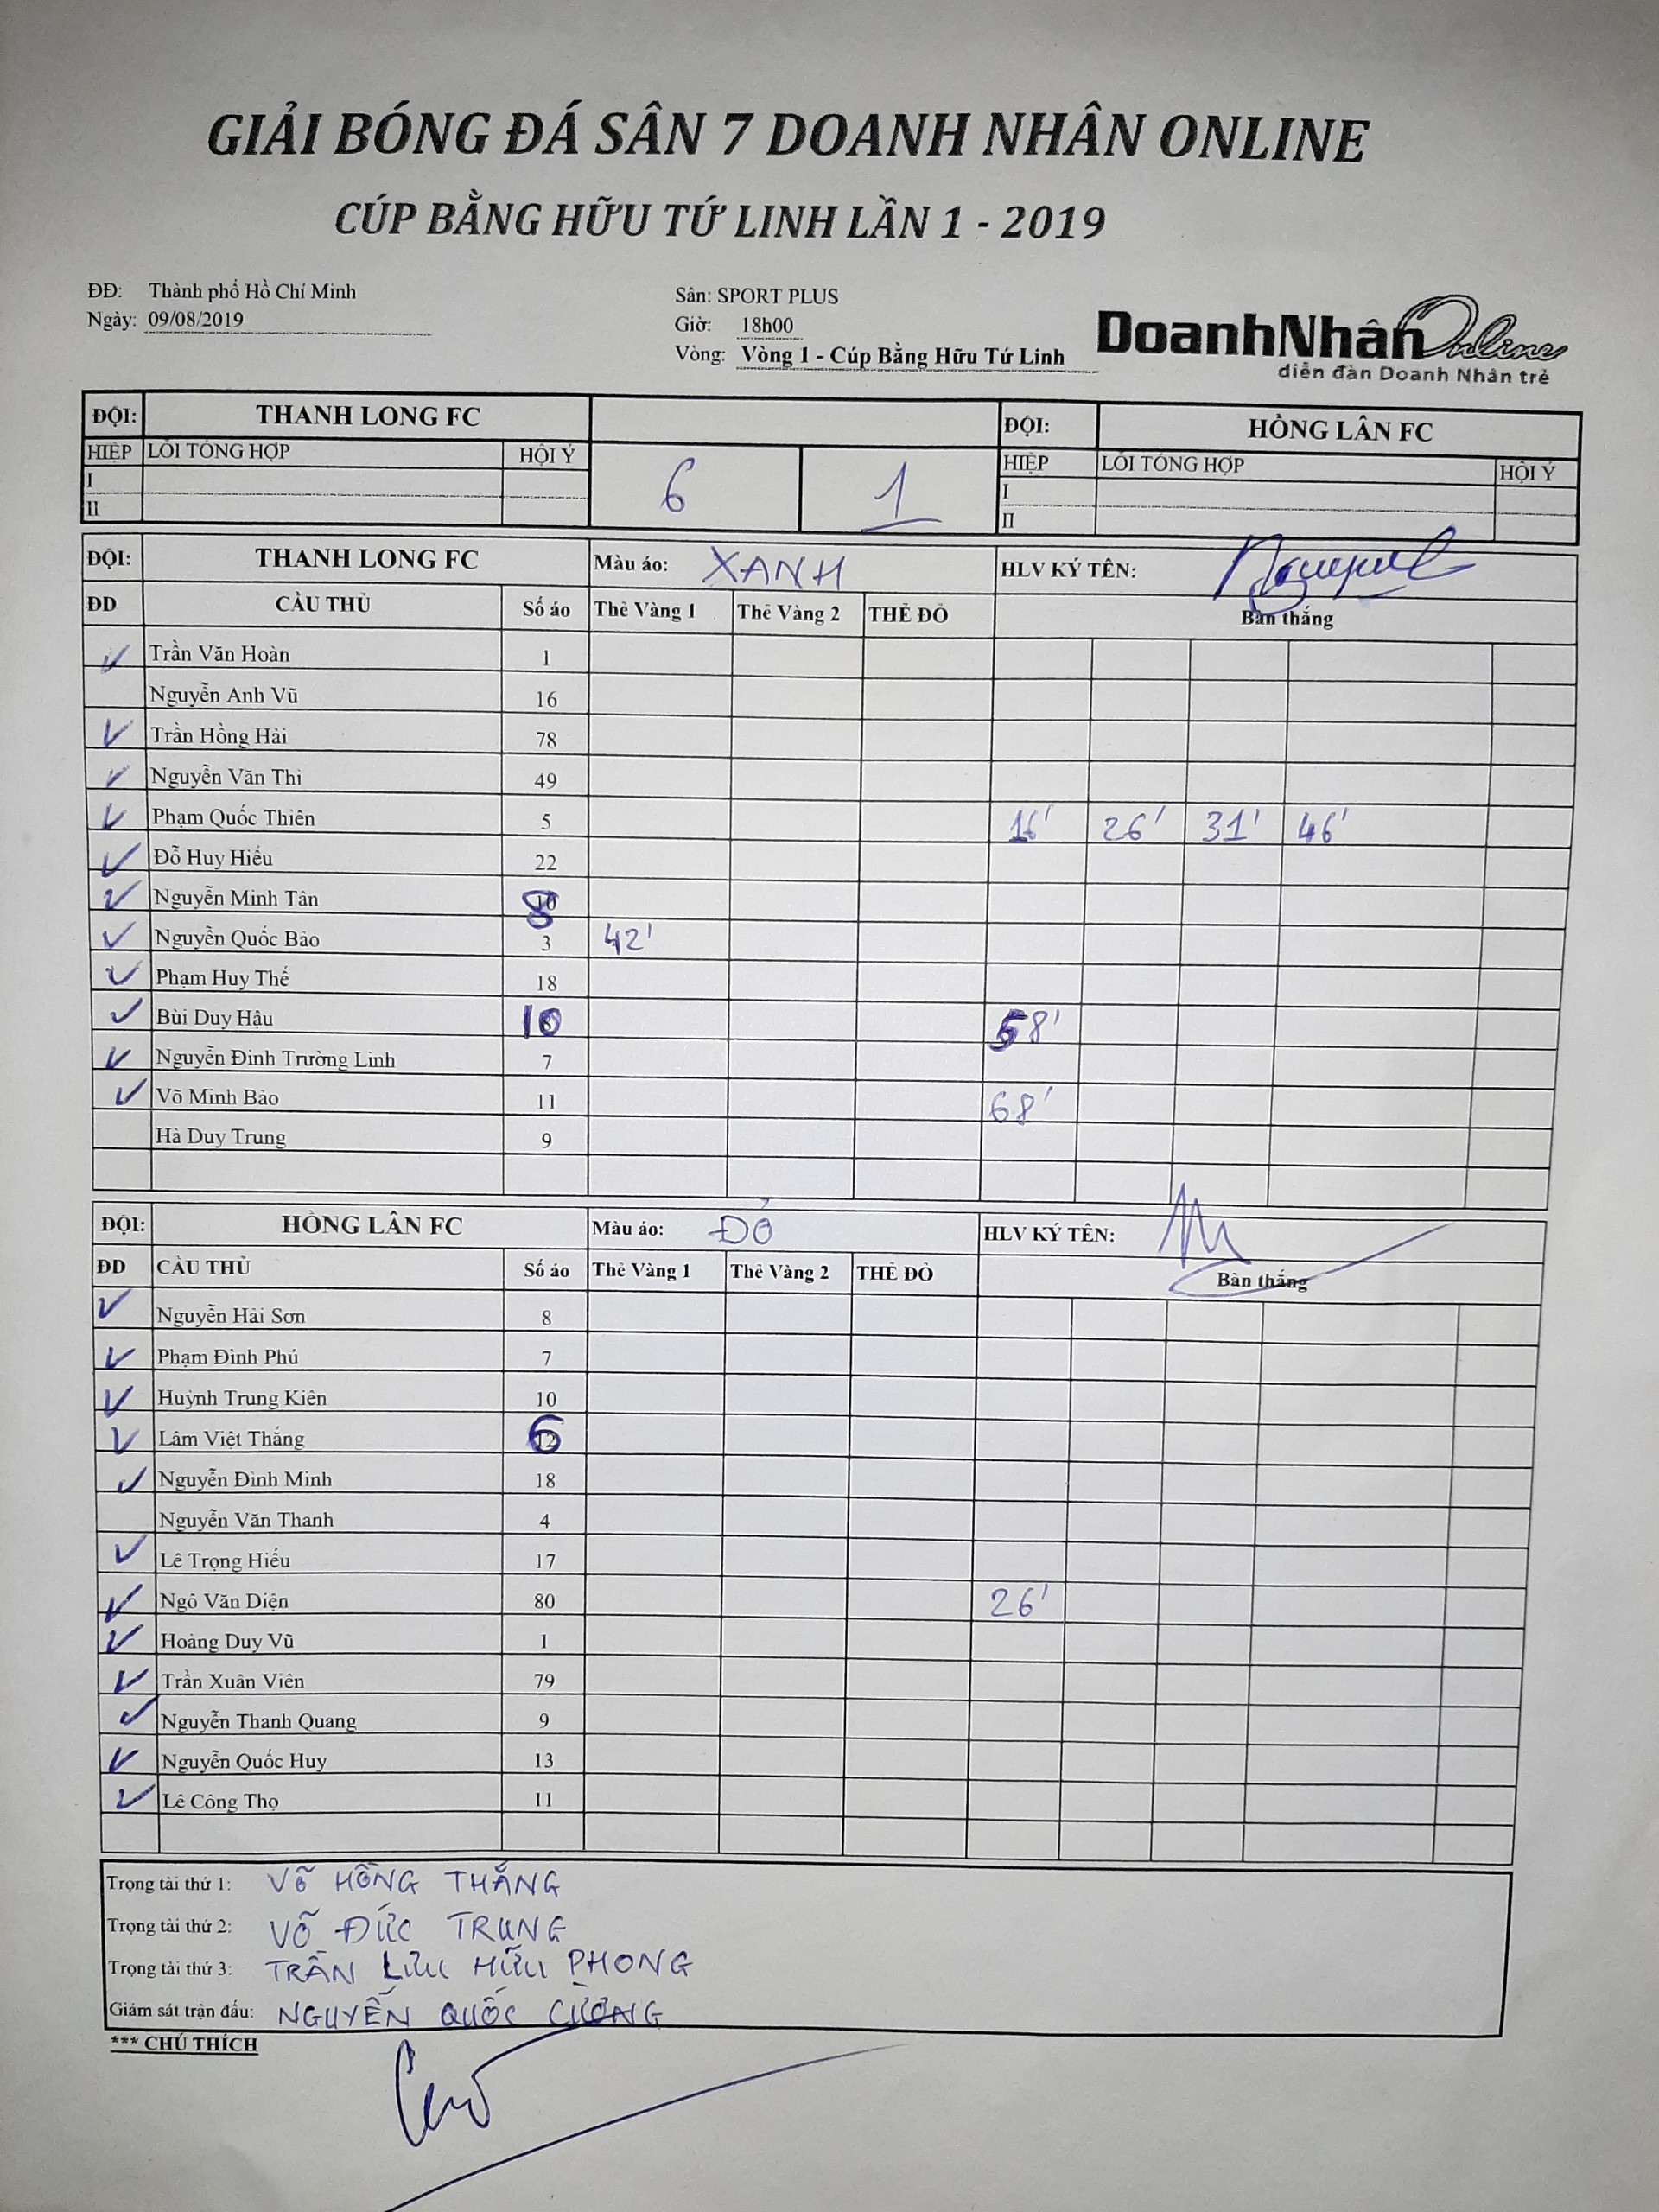 GIẢI BÓNG ĐÁ SÂN 7 DOANH NHÂN ONLINE
CÚP BẰNG HỮU TỨ LINH LẦN 1 - 2019
ĐĐ: Thành phố Hồ Chí Minh Sân: SPORT PLUS
Ngày: 09/08/2019 Giờ: 18h00
Vòng: Vòng 1 - Cúp Bằng Hữu Tứ Linh
DoanhNhân Online
diễn đàn Doanh Nhân trẻ
ĐỘI: THANH LONG FC ĐỘI: HỒNG LÂN FC
HIỆP LỖI TỔNG HỢP HỘI Ý 6 1 HIỆP LỖI TỔNG HỢP HỘI Ý
I I
II II
ĐỘI: THANH LONG FC Màu áo: XANH HLV KÝ TÊN:
ĐD CẦU THỦ Số áo Thẻ Vàng 1 Thẻ Vàng 2 THẺ ĐỎ Bàn thắng
Trần Văn Hoàn 1
Nguyễn Anh Vũ 16
Trần Hồng Hải 78
Nguyễn Văn Thi 49
Phạm Quốc Thiên 5 16' 26' 31' 46'
Đỗ Huy Hiếu 22
Nguyễn Minh Tân 8
Nguyễn Quốc Bảo 3 42'
Phạm Huy Thế 18
Bùi Duy Hậu 10 58'
Nguyễn Đình Trường Linh 7
Võ Minh Bảo 11 68'
Hà Duy Trung 9
ĐỘI: HỒNG LÂN FC Màu áo: ĐỎ HLV KÝ TÊN:
ĐD CẦU THỦ Số áo Thẻ Vàng 1 Thẻ Vàng 2 THẺ ĐỎ Bàn thắng
Nguyễn Hải Sơn 8
Phạm Đình Phú 7
Huỳnh Trung Kiên 10
Lâm Việt Thắng 6
Nguyễn Đình Minh 18
Nguyễn Văn Thanh 4
Lê Trọng Hiếu 17
Ngô Văn Diện 80 26'
Hoàng Duy Vũ 1
Trần Xuân Viên 79
Nguyễn Thanh Quang 9
Nguyễn Quốc Huy 13
Lê Công Thọ 11
Trọng tài thứ 1: VÕ HỒNG THẮNG
Trọng tài thứ 2: VÕ ĐỨC TRUNG
Trọng tài thứ 3: TRẦN LƯU HỮU PHONG
Giám sát trận đấu: NGUYỄN QUỐC CƯỜNG
*** CHÚ THÍCH